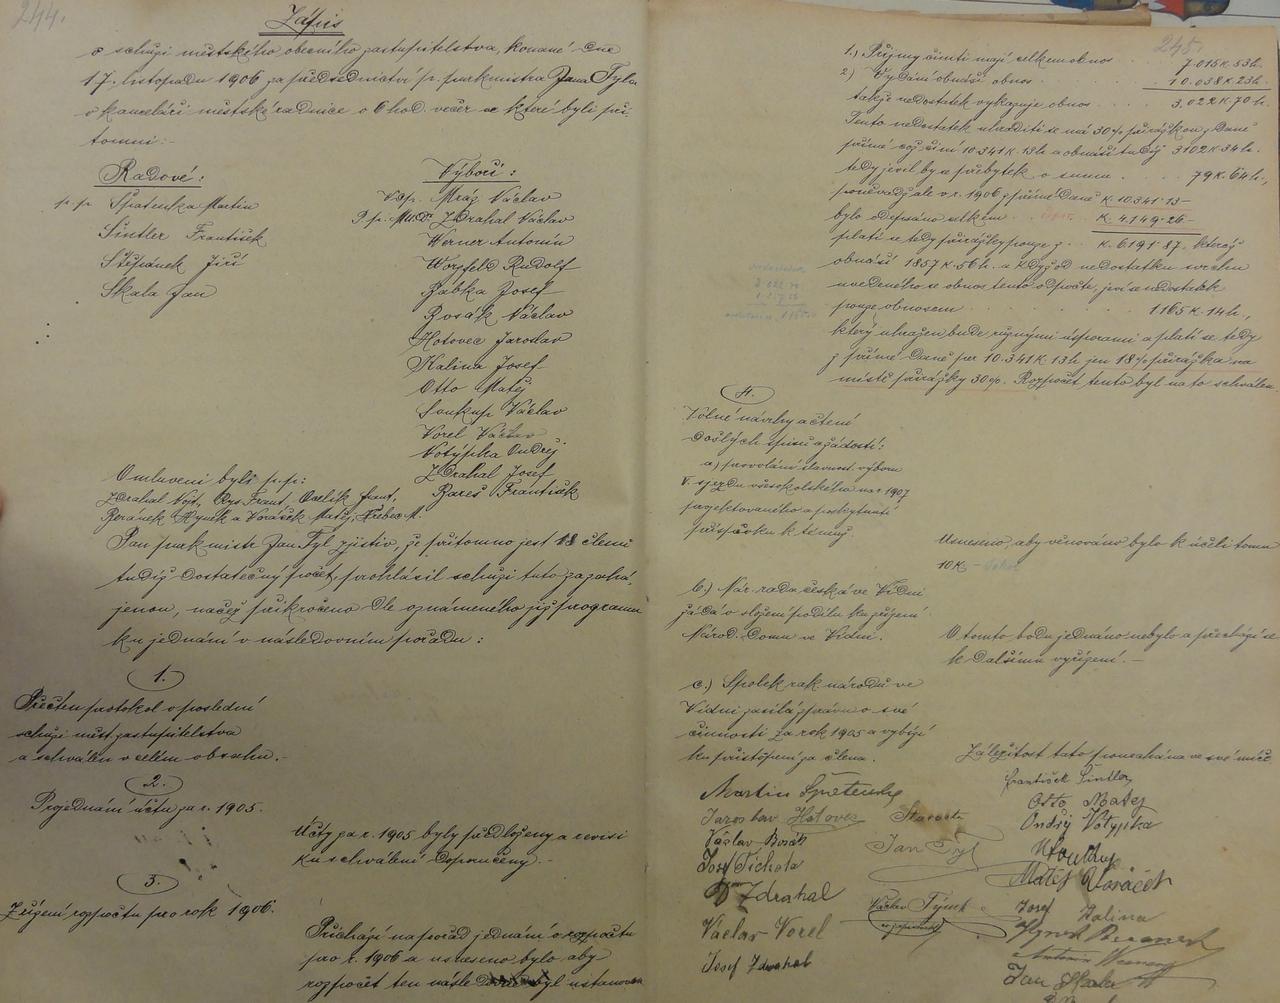 244.
Zápis
o schůzi městského obecního zastupitelstva, konané dne
17. listopadu 1906 za předsednictví p. purkmistra Jana Tyla
v kanceláři městské radnice o 6 hod. večer ve které byli pří-
tomni:-
Radové:
p.p. Špatenka Martin
Šintler František
Štěpánek Jiří
Skala Jan
Výboři:
Vdp. Mráz Václav
P. p. Mudr. Zdrahal Václav
Werner Antonín
Worzfeld Rudolf
Babka Josef
Bosák Václav
Hotovec Jaroslav
Kalina Josef
Otto Matěj
Soukup Václav
Vorel Václav
Votýpka Ondřej
Zdrahal Josef
Bareš František
Omluveni byli p.p:
Zdrahal Vojt, Rys Frant, Frant,
Beránek Hynek a Voráček Matěj, M.
Pan purkmistr Jan Tyl zjistiv, že přítomno jest 18 členů
tudíž dostatečný počet, prohlásil schůzi tuto za zahá-
jenou, načež přikročeno dle oznámeného již programu
ku jednání v následovním pořadu:
1.
Přečten protokol o poslední
schůzi měst. zastupitelstva
a schválen v celém obsahu.-
2.
Projednání účtu za r. 1905.
Účty za r. 1905 byly předloženy a revisí
ku schválení doporučeny.-
3.
Zřízení rozpočtu pro rok 1906.
Přichází na pořad jednání o rozpočtu
pro r. 1906 a usneseno bylo, aby
rozpočet ten násle byl ustanoven
245.
1.) Příjmy činiti mají celkem obnos . . . 7.015 K. 53 h.
2) Vydání obnáší obnos . . . 10.038 K. 23 h.
takže nedostatek vykazuje obnos . . . . 3.022 K. 70 h.
Tento nedostatek uhraditi se má 30% přirážkou z daně
přímé což činí 10.341 K. 13 h a obnáší tudíž 3102 K. 34 h.
tedy jevil by se přebytek o sumu . . . 79 K. 64 h.,
poněvadž ale v r. 1906 z přímé daně K. 10.341·13-
bylo odepsáno celkem . . . K. 4.149·26-
platí se tedy přirážky pouze z . . K. 6191·87. který
obnáší 1857 K. 56 h. a když od nedostatku svrchu
uvedeného se obnos tento odpočte, jeví se nedostatek
pouze obnosem . . . . . . . . . 1165 K. 14 h.,
který uhražen bude různými úsporami a platí se tedy
z přímé daně per 10.341 K. 13 h jen 18% přirážka na
místě přirážky 30%. Rozpočet tento byl na to schválen.
4.
Volné návrhy a čtení
došlých spisů a žádostí:
a) provolání slavnost. výboru
V. sjezdu všesokolského na r. 1907
projektovaného a poskytnutí
příspěvku k témuž.
Usneseno, aby věnováno bylo k účeli tomu
10 K - Sokol
b.) Nár. rada česká ve Vídni
žádá o složení podílu ku zřízení
Národ. Domu ve Vídni.
O tomto bodu jednáno nebylo a přechází se
k dalšímu vyřízení.-
c.) Spolek rak. národů ve
Vídni zasílá zprávu o své
činnosti za rok 1905 a vybízí
ku přistoupení za člena.
Záležitost tato ponechána ve své míře
Martin Špatenka
Jaroslav Hotovec
Václav Bosák
Josef Tichota
Dr Zdrahal
Václav Vorel
Josef Zdrahal
Starosta
Jan Tyl
Václav Týnek
zapisovatel
František Šintler
Otto Matěj
Ondřej Votypka
Matěj Voráček
Josef Kalina
Hynek Beranek
Antonin Werner
Jan Skala